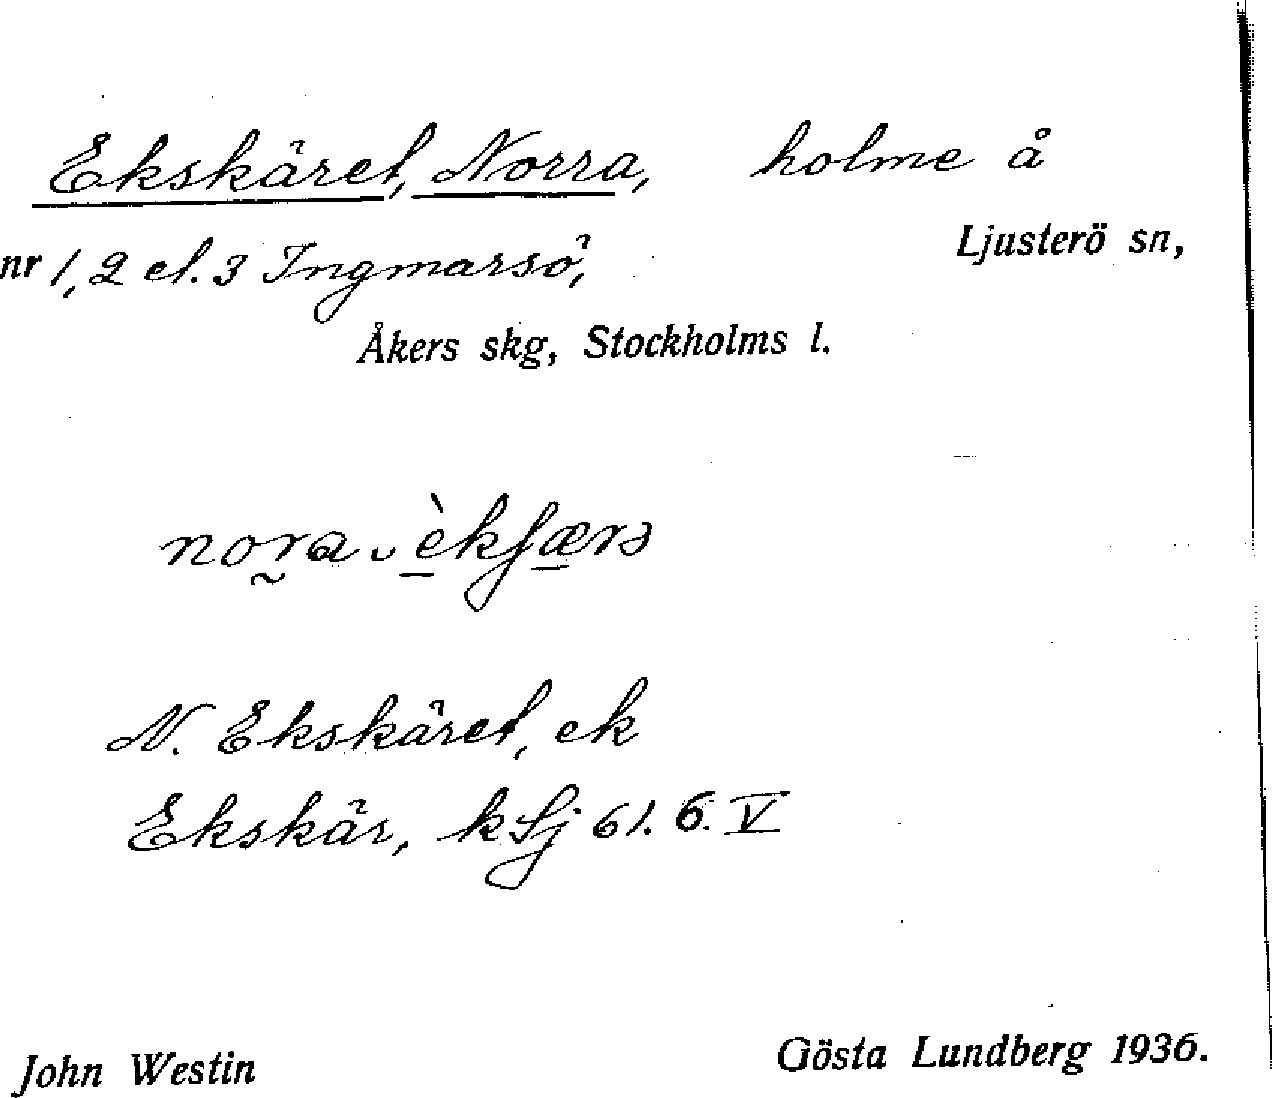 Ekskäret, Norra, holme å
nr 1, 2 el. 3 Ingmarsö, Ljusterö sn,
Åkers skg, Stockholms l.
N. Ekskäret, ek
Ekskär, kSj 61. 6. V
John Westin Gösta Lundberg 1936.